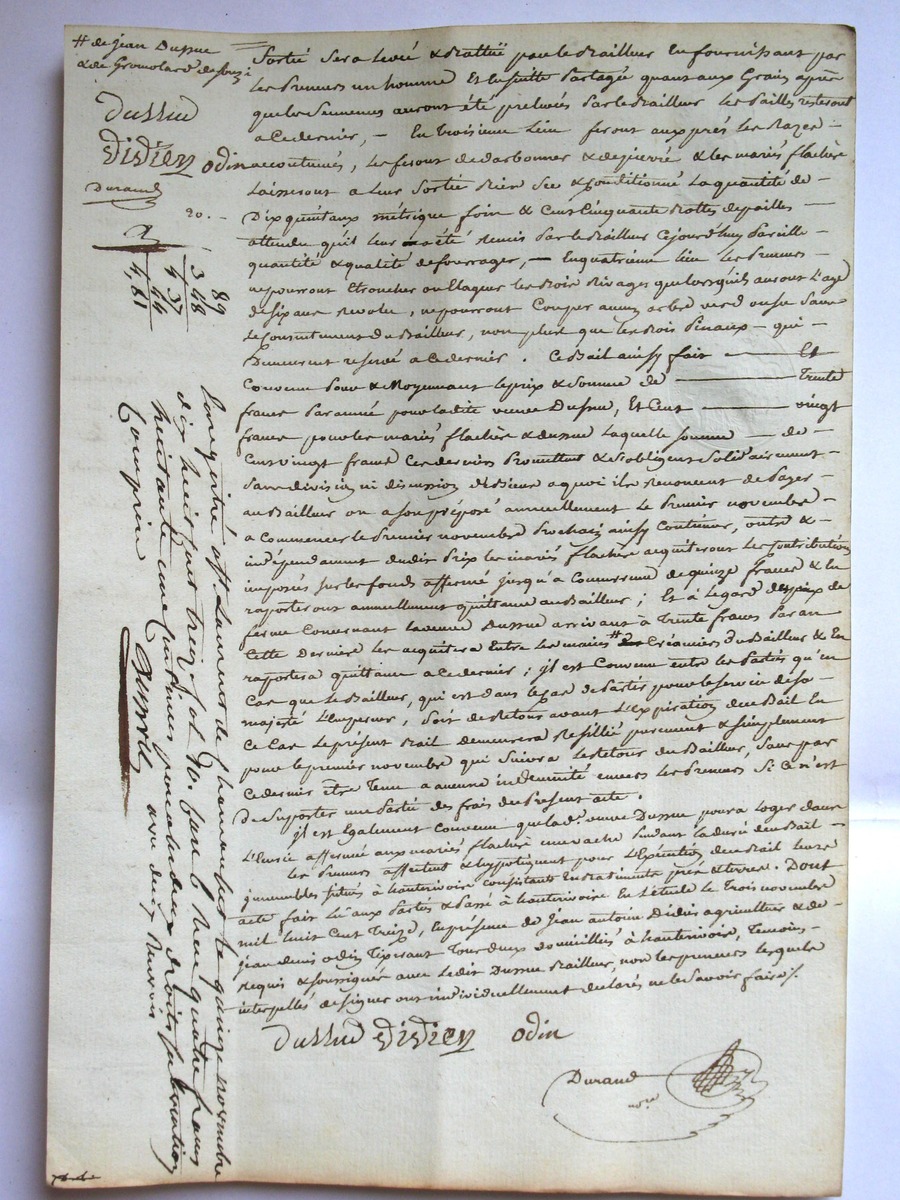 # de jean Dussue
& de Gromolard de jouzi
Dussud
Didier odin
Durand
20. -
89
3 48
4 37
44
4,81
Sortie Sera levée & Battüe par le Bailleur En fournissant par
les Preneurs un homme Et Ensuitte Partagée quant aux Grains après
que les Semences auront été prelevées Par le Bailleur les Pailles resteront
a Ce dernier, — En Troisieme Lieu feront aux prés les Razes
accoutumées, les feront de darbonner & depierré & les mariés flachère
Laisseront a Leur Sortie Bien Sec & Conditionné La quantité de —
Dix quintaux métrique foin & Cent Cinquante Bottes de pailles —
attendu qu'il Leur a été Remis Par le Bailleur Cejourd'huy Pareille
quantité & qualité de fourrages, — En quatrieme Lieu les Preneurs —
ne pourront Etroncher ou Elaguer les Bois Rivages que lorsqu'ils auront L'age
de six ans Revolu, ne pourront Couper aucun arbre verd ou sec Sans
le Consentement du Bailleur, non plus que les Bois Pinaux — qui —
Demeurent reservé a Ce dernier. Ce Bail ainsy fait — Et
Convenu Pour & Moyennant le prix & Somme de — Trente
francs Par année pour ladite veuve Dussue, Et Cent — vingt
francs pour les mariés flachère & dussue Laquelle Somme — de —
Cent vingt francs Ces derniers Promettent & s'obligent Solidairement —
Sans division ni discussion de Biens a quoi ils Renoncent de Payer —
au Bailleur ou a son préposé annuellement le Premier novembre —
a Commencer le Premier novembre Prochain ainsy Continuer, outre &
indépendament dudit Prix les mariés flachère acquiteront les Contributions
imposés sur les fonds affermé jusqu'a Concurrence de quinze francs & En
raporteront annuellement quittance au Bailleur; Et à l'egard du prix de
ferme Concernant la veuve Dussue arrivant à Trente francs Par an
Cette Derniere les acquitera Entre les mains # des Créanciers du Bailleur & En
raportera quittance a Ce dernier; il est Convenu entre les Parties qu'en
Cas que le Bailleur, qui est dans le Cas de Partir pour le service de Sa
majesté L'Empereur, Soit de Retour avant L'Expiration du Bail En
Ce Cas le présent Bail demeurera Résillié purement & simplement
pour le premier novembre qui Suivra le Retour du Bailleur, Sans par
Ce dernier être Tenu a aucune indemnité envers les Preneurs Si Ce n'est
de Suporter une Partie des frais du Présent acte.
il est Egalement Convenu que lad. veuve Dussue pourra Loger dans
L'Ecurie affermé aux mariés flachère une vache Pendant la durée du Bail —
les Preneurs affectent & hypotequent pour L'Exécution du Bail Leurs
immeubles situés à hauterivoire Consistants En Batiments prés & terres. Dont
acte fait Lu aux Parties & Passé à hauterivoire En L'étude le Trois novembre
mil huit Cent Treize, En présence de Jean antoine Didier agriculteur & de —
jean denis odin Tisserant Tous deux Domiciliés à hauterivoire, Temoins —
Requis & Soussignés avec Ledit Dussue Bailleur, non les preneurs lesquels
interpellés de signer ont individuellement déclarés ne le Savoir faire /.
Dussud Didier odin
Durand
nore
Enregistré à St Laurent de Chamousset le quinze novembre
dix huit cent treize fol. Vo. Case reçu quatre francs
huitante un Centimes pour les deux droits
Compris avec dixieme